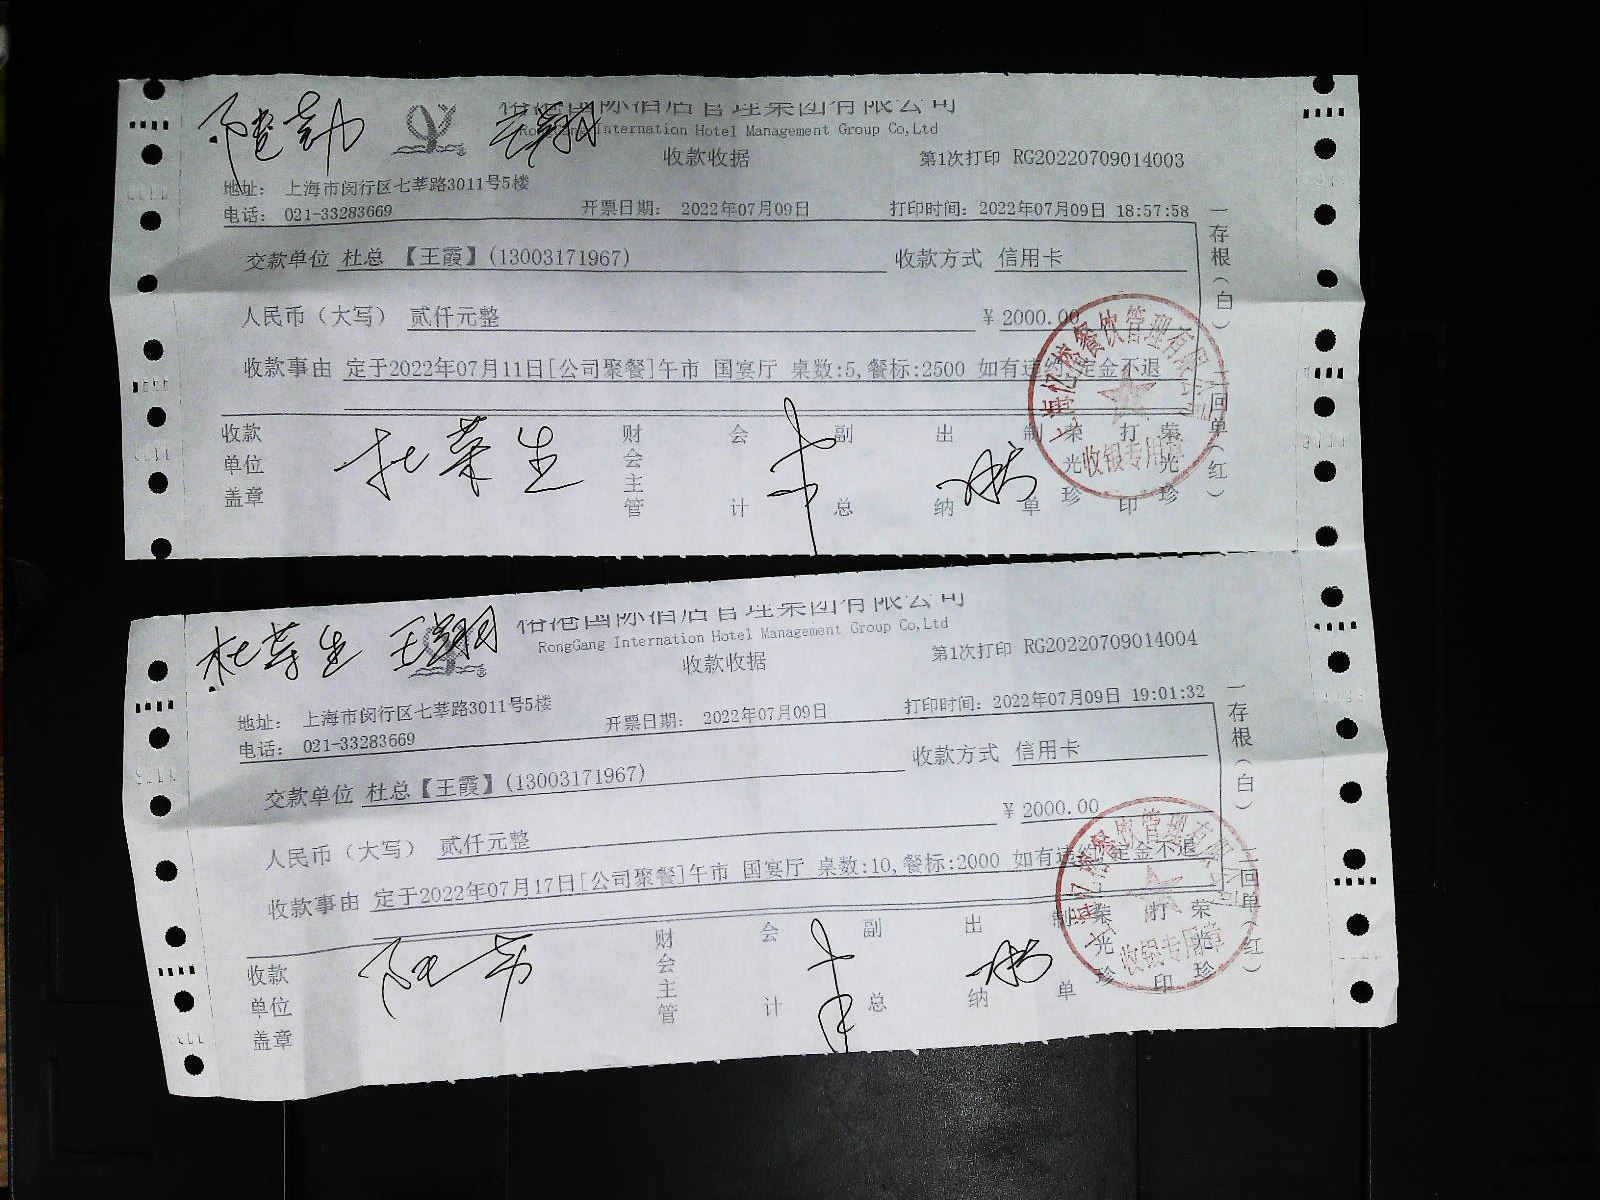 裕港国际酒店管理集团有限公司
RongGang Internation Hotel Management Group Co,Ltd
收款收据
第1次打印 RG20220709014003
地址： 上海市闵行区七莘路3011号5楼
电话： 021-33283669 开票日期： 2022年07月09日 打印时间：2022年07月09日 18:57:58
交款单位 杜总 【王霞】(13003171967) 收款方式 信用卡
人民币（大写） 贰仟元整 ¥ 2000.00
收款事由 定于2022年07月11日[公司聚餐]午市 国宴厅 桌数:5,餐标:2500 如有违约,定金不退
收款单位盖章 杜荣生 财会主管 会计 副总 出纳 制单 荣光珍 打印 荣光珍
一存根（白）
二回单（红）
收银专用章
杜荣生 王翔
裕港国际酒店管理集团有限公司
RongGang Internation Hotel Management Group Co,Ltd
收款收据
第1次打印 RG20220709014004
地址： 上海市闵行区七莘路3011号5楼
电话： 021-33283669 开票日期： 2022年07月09日 打印时间：2022年07月09日 19:01:32
交款单位 杜总【王霞】(13003171967) 收款方式 信用卡
人民币（大写） 贰仟元整 ¥ 2000.00
收款事由 定于2022年07月17日[公司聚餐]午市 国宴厅 桌数:10,餐标:2000 如有违约,定金不退
收款单位盖章 财会主管 会计 副总 出纳 制单 荣光珍 打印 荣光珍
一存根（白）
二回单（红）
收银专用章